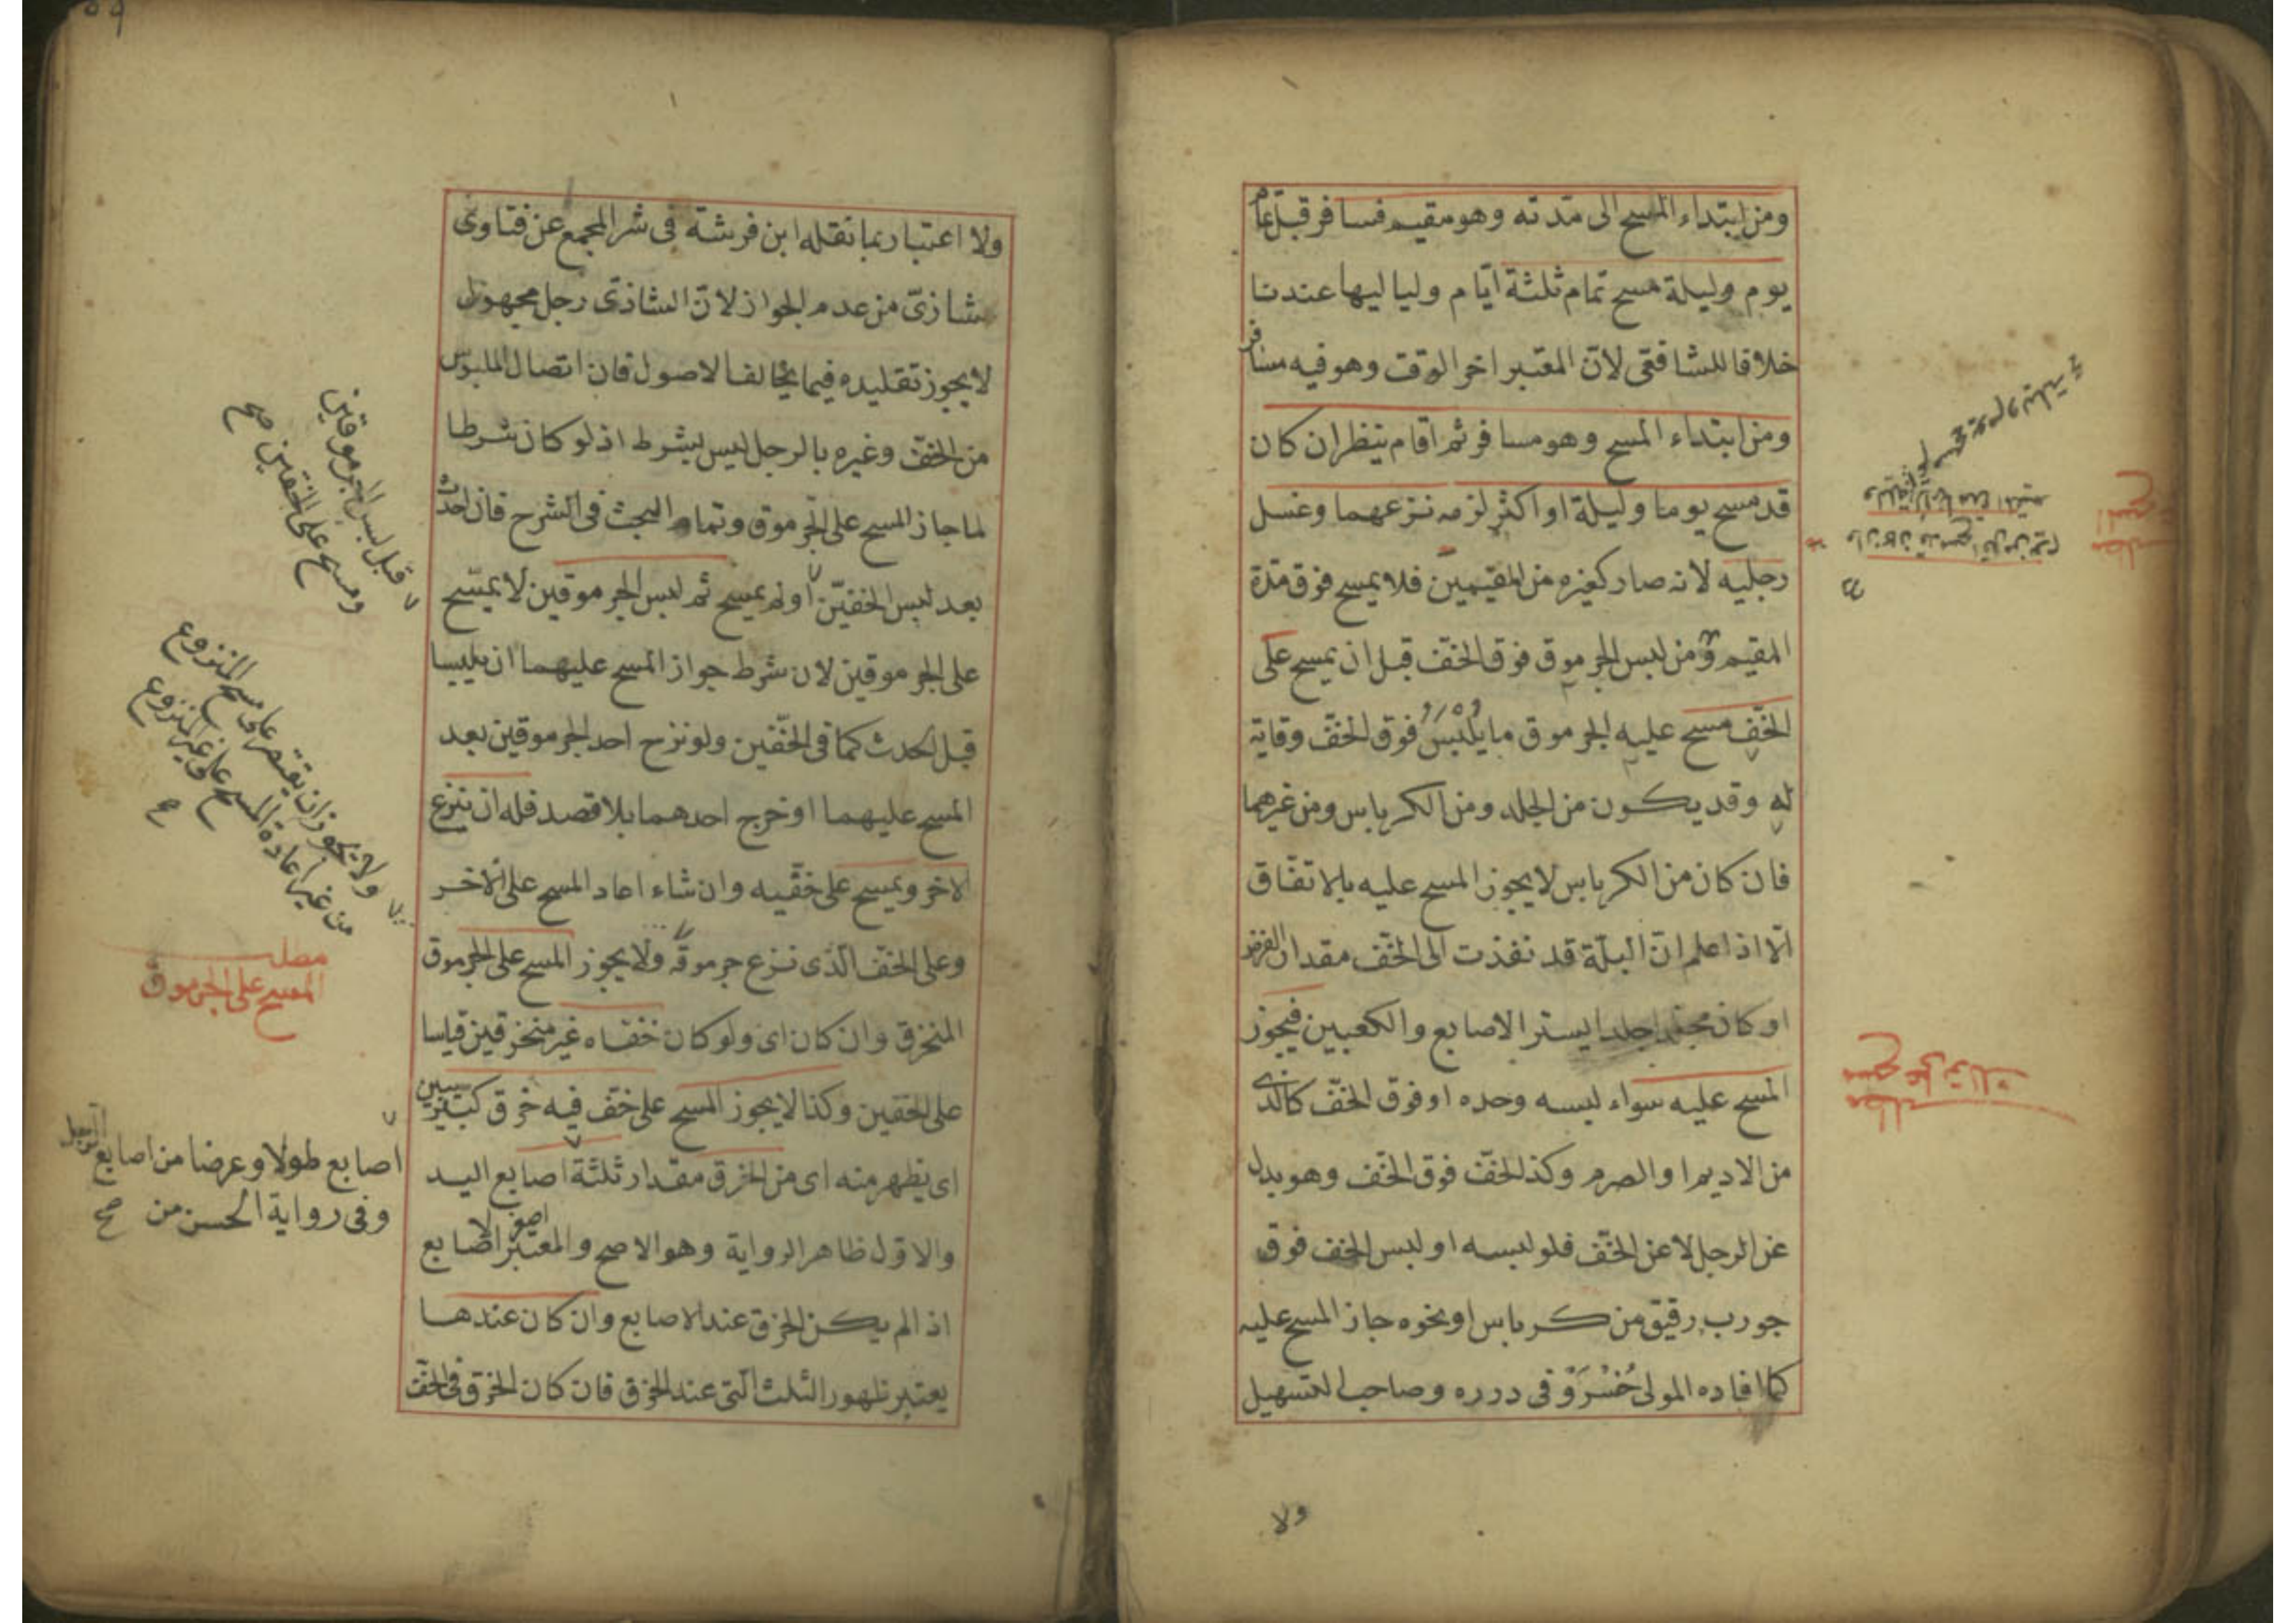 ومن ابتداء المسح الى مدته وهو مقيم فسافر قبل تمام
يوم وليلة مسح تمام ثلثة ايّام ولياليها عندنا
خلافا للشافعى لانّ المعتبر اخر الوقت وهو فيه مسافر
ومن ابتداء المسح وهو مسافر ثم اقام ينظر ان كان
قد مسح يوما وليلة او اكثر لزمه نزعهما وغسل
رجليه لانه صار كغيره من المقيمين فلا يمسح فوق مدّة
المقيم ومن لبس الجرموق فوق الخفّ قبل ان يمسح على
الخفّ مسح عليه الجرموق ما يُلْبَسُ فوق الخفّ وقاية
له وقد يكون من الجلد ومن الكرباس ومن غيرهما
فان كان من الكرباس لا يجوز المسح عليه بالاتفاق
الّا اذا علم انّ البلّة قد نفذت الى الخفّ مقدار الفرض
او كان جلدا يستر الاصابع والكعبين فيجوز
المسح عليه سواء لبسه وحده او فوق الخفّ كالذى
من الاديم او الصرم وكذا الخفّ فوق الخفّ وهو بدل
عن الرجل لا عن الخفّ فلو لبسه او لبس الخف فوق
جورب رقيق من كرباس او نحوه جاز المسح عليه
كما افاده المولى خُسْرَوْ فى درره وصاحب التسهيل
ولا
ولا اعتبار بما نقله ابن فرشتة فى شر المجمع عن فتاوى
شاذىّ من عدم الجواز لانّ الشاذى رجل مجهول
لا يجوز تقليده فيما يخالف الاصول فان اتصال الملبوس
من الخفّ وغيره بالرجل ليس بشرط اذ لو كان شرطا
لما جاز المسح على الجرموق وتمام البحث فى الشرح فان احدث
بعد لبس الخفيّن او لم يمسح ثم لبس الجرموقين لا يمسح
على الجرموقين لان شرط جواز المسح عليهما ان يلبسا
قبل الحدث كما فى الخفّين ولو نزع احد الجرموقين بعد
المسح عليهما او خرج احدهما بلا قصد فله ان ينزع
الاخر ويمسح على خفّيه وان شاء اعاد المسح على الاخر
وعلى الخفّ الّذى نزع جرموقه ولا يجوز المسح على الجرموق
المنخرق وان كان اى ولو كان خفاه غير منخرقين قياسا
على الخفين وكذا لا يجوز المسح على خفّ فيه خرق كبير
اى يظهر منه اى من الخرق مقدار ثلثة اصابع اليد
والاوّل ظاهر الرواية وهو الاصح والمعتبر الاصابع
اذا لم يكن الخرق عند الاصابع وان كان عندها
يعتبر ظهور الثلث الّتى عند الخرق فان كان الخرق فى الخفّ
قبل لبس الجرموقين
ومسح على الخفين صح
ولا يجوز ان يقتصر على مسح المنزوع
من غير اعادة المسح على غير المنزوع
صح
مطلب
المسح على الجرموق
اصابع طولا وعرضا من اصابع الرجل
وفى رواية الحسن من صح